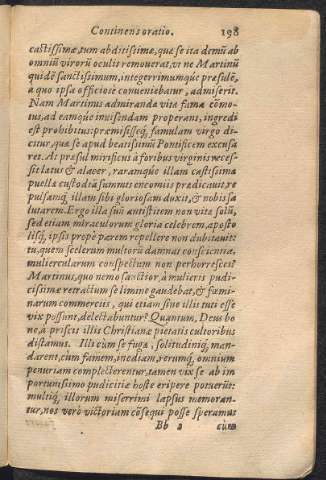 Continens oratio. 198
castissimæ, tum abditissimæ, quæ se ita demũ ab
omniũ virorũ oculis remouerat, vt ne Martinũ
quidẽ sanctissimum, integerrimumq́ue præsulẽ,
a quo ipsa officiosè conueniebatur, admiserit.
Nam Martinus admiranda vitæ fama cõmo-
tus, ad eamq́ue inuisendam properans, ingredi
est prohibitus: præmisisseq́; famulam virgo di-
citur, quæ se apud beatissimũ Pontificem excusa
ret. At præsul mirificus à foribus virginis reces-
sit lætus & alacer, raramq́ue illam castissimæ
puellæ custodiã summis encomiis prædicauit, re
pulsamq́; illam sibi gloriosam duxit, & nobis sa
lutarem. Ergo illa suũ antistitem non vitæ solũ,
sed etiam miraculorum gloria celebrem, aposto
lisq́; ipsis propè parem repellere non dubitauit:
tu, quem scelerum multorũ damnat conscientia,
muliercularum conspectum non perhorrescis?
Martinus, quo nemo sanctior, à mulieris pudi-
cissimæ retractum se limine gaudebat, & fœmi-
narum commerciis, qui etiam sine illis tuti esse
vix possunt, delectabuntur? Quantum, Deus bo
ne, à priscis illis Christianæ pietatis cultoribus
distamus. Illi cùm se fugæ, solitudiniq́; man-
darent, cùm famem, inediam, rerumq́; omnium
penuriam complecterentur, tamen vix se ab im
portunissimo pudicitiæ hoste eripere potuerũt:
multiq́; illorum miserrimi lapsus memoran-
tur, nos verò victoriam cõsequi posse speramus
Bb 2 cùm